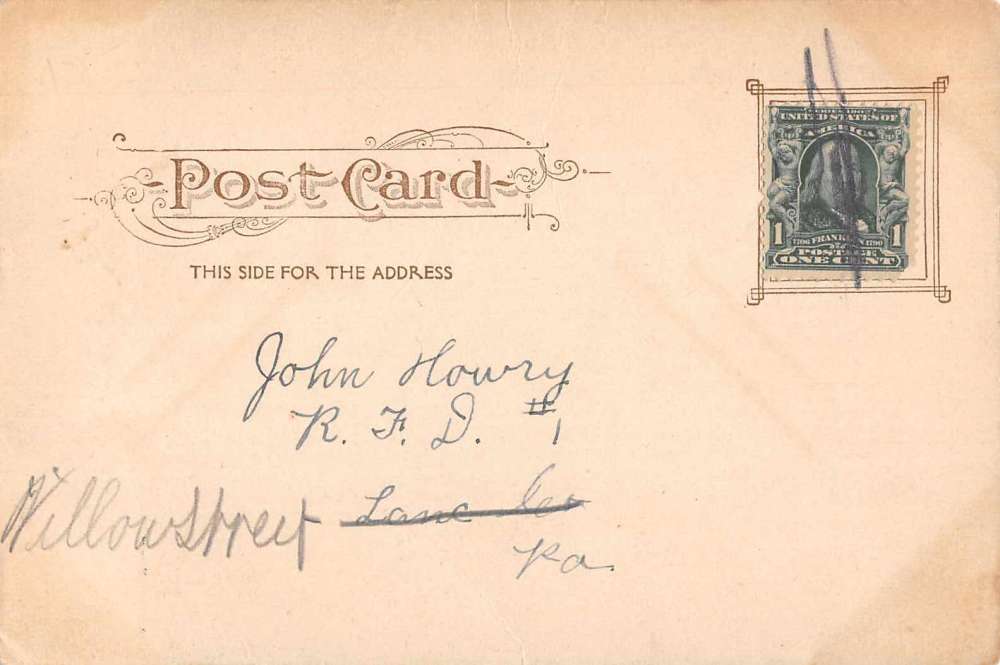 Post Card
THIS SIDE FOR THE ADDRESS
UNITED STATES OF
AMERICA
1 1706 FRANKLIN 1790 1
POSTAGE
ONE CENT
John Howry
R. F. D. #1
Willow Street Lanc Co
Pa.